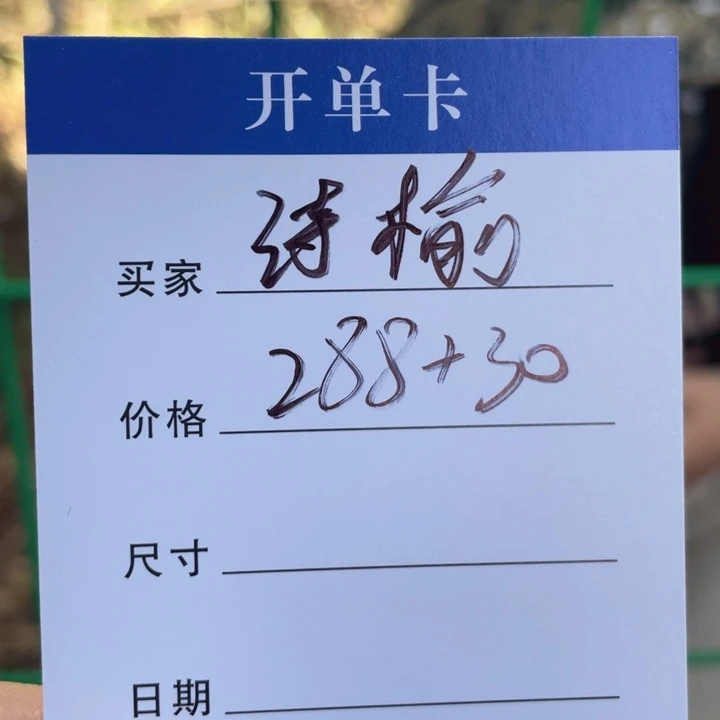 开单卡
买家 诗榆
价格 288+30
尺寸
日期